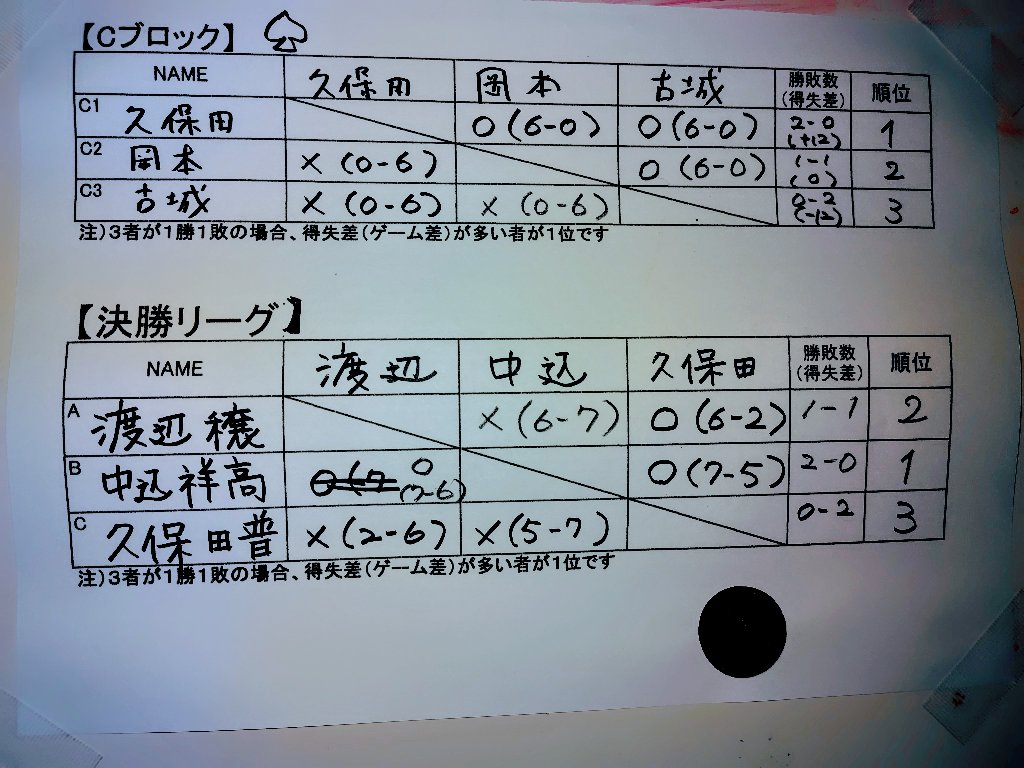 【Cブロック】
NAME 久保田 岡本 古城 勝敗数(得失差) 順位
C1 久保田 O(6-0) O(6-0) 2-0 (+12) 1
C2 岡本 ×(0-6) O(6-0) 1-1 (0) 2
C3 古城 ×(0-6) ×(0-6) 0-2 (-12) 3
注)3者が1勝1敗の場合、得失差(ゲーム差)が多い者が1位です
【決勝リーグ】
NAME 渡辺 中込 久保田 勝敗数(得失差) 順位
A 渡辺穣 ×(6-7) O(6-2) 1-1 2
B 中込祥高 O(7-6) O(7-5) 2-0 1
C 久保田普 ×(2-6) ×(5-7) 0-2 3
注)3者が1勝1敗の場合、得失差(ゲーム差)が多い者が1位です